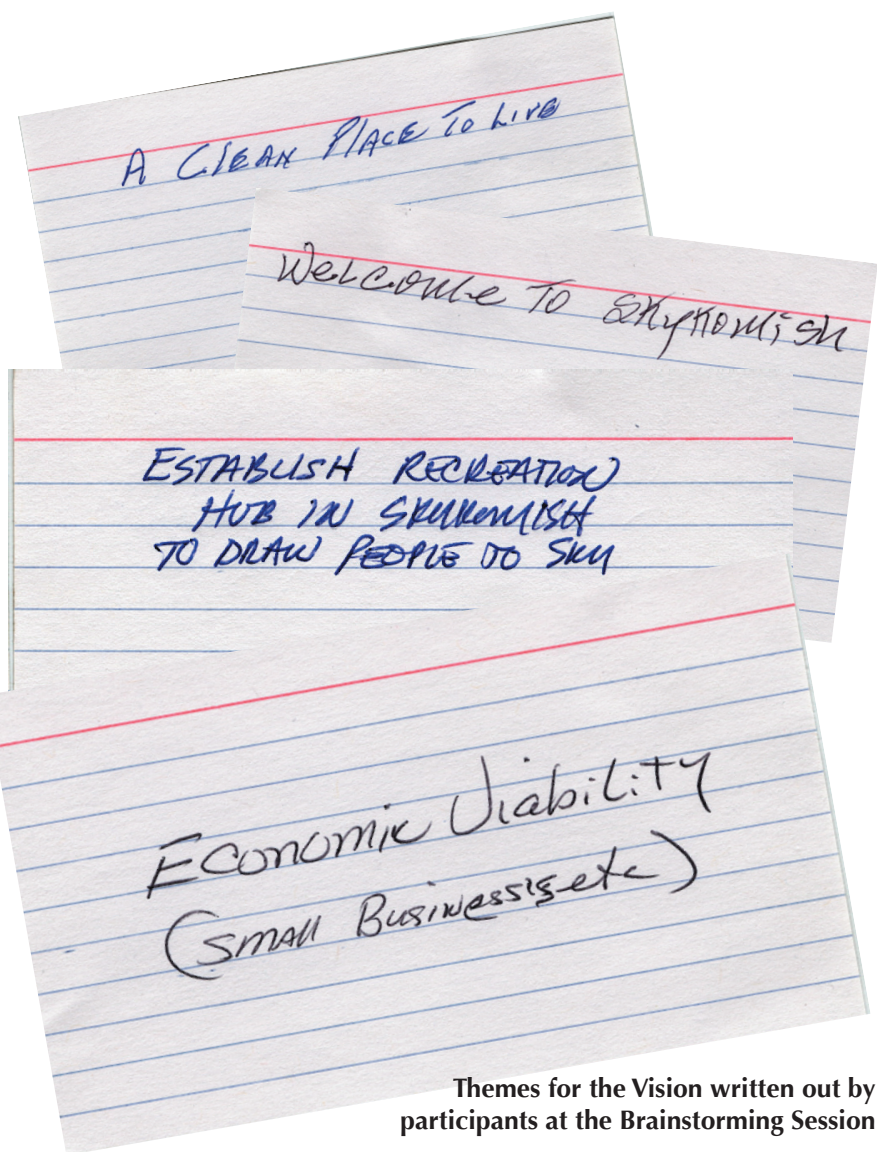 A CLEAN PLACE TO LIVE
WELCOME TO SKYKOMISH
ESTABLISH RECREATION
HUB IN SKYKOMISH
TO DRAW PEOPLE TO SKY
Economic Viability
(SMALL Businessis etc)
Themes for the Vision written out by
participants at the Brainstorming Session